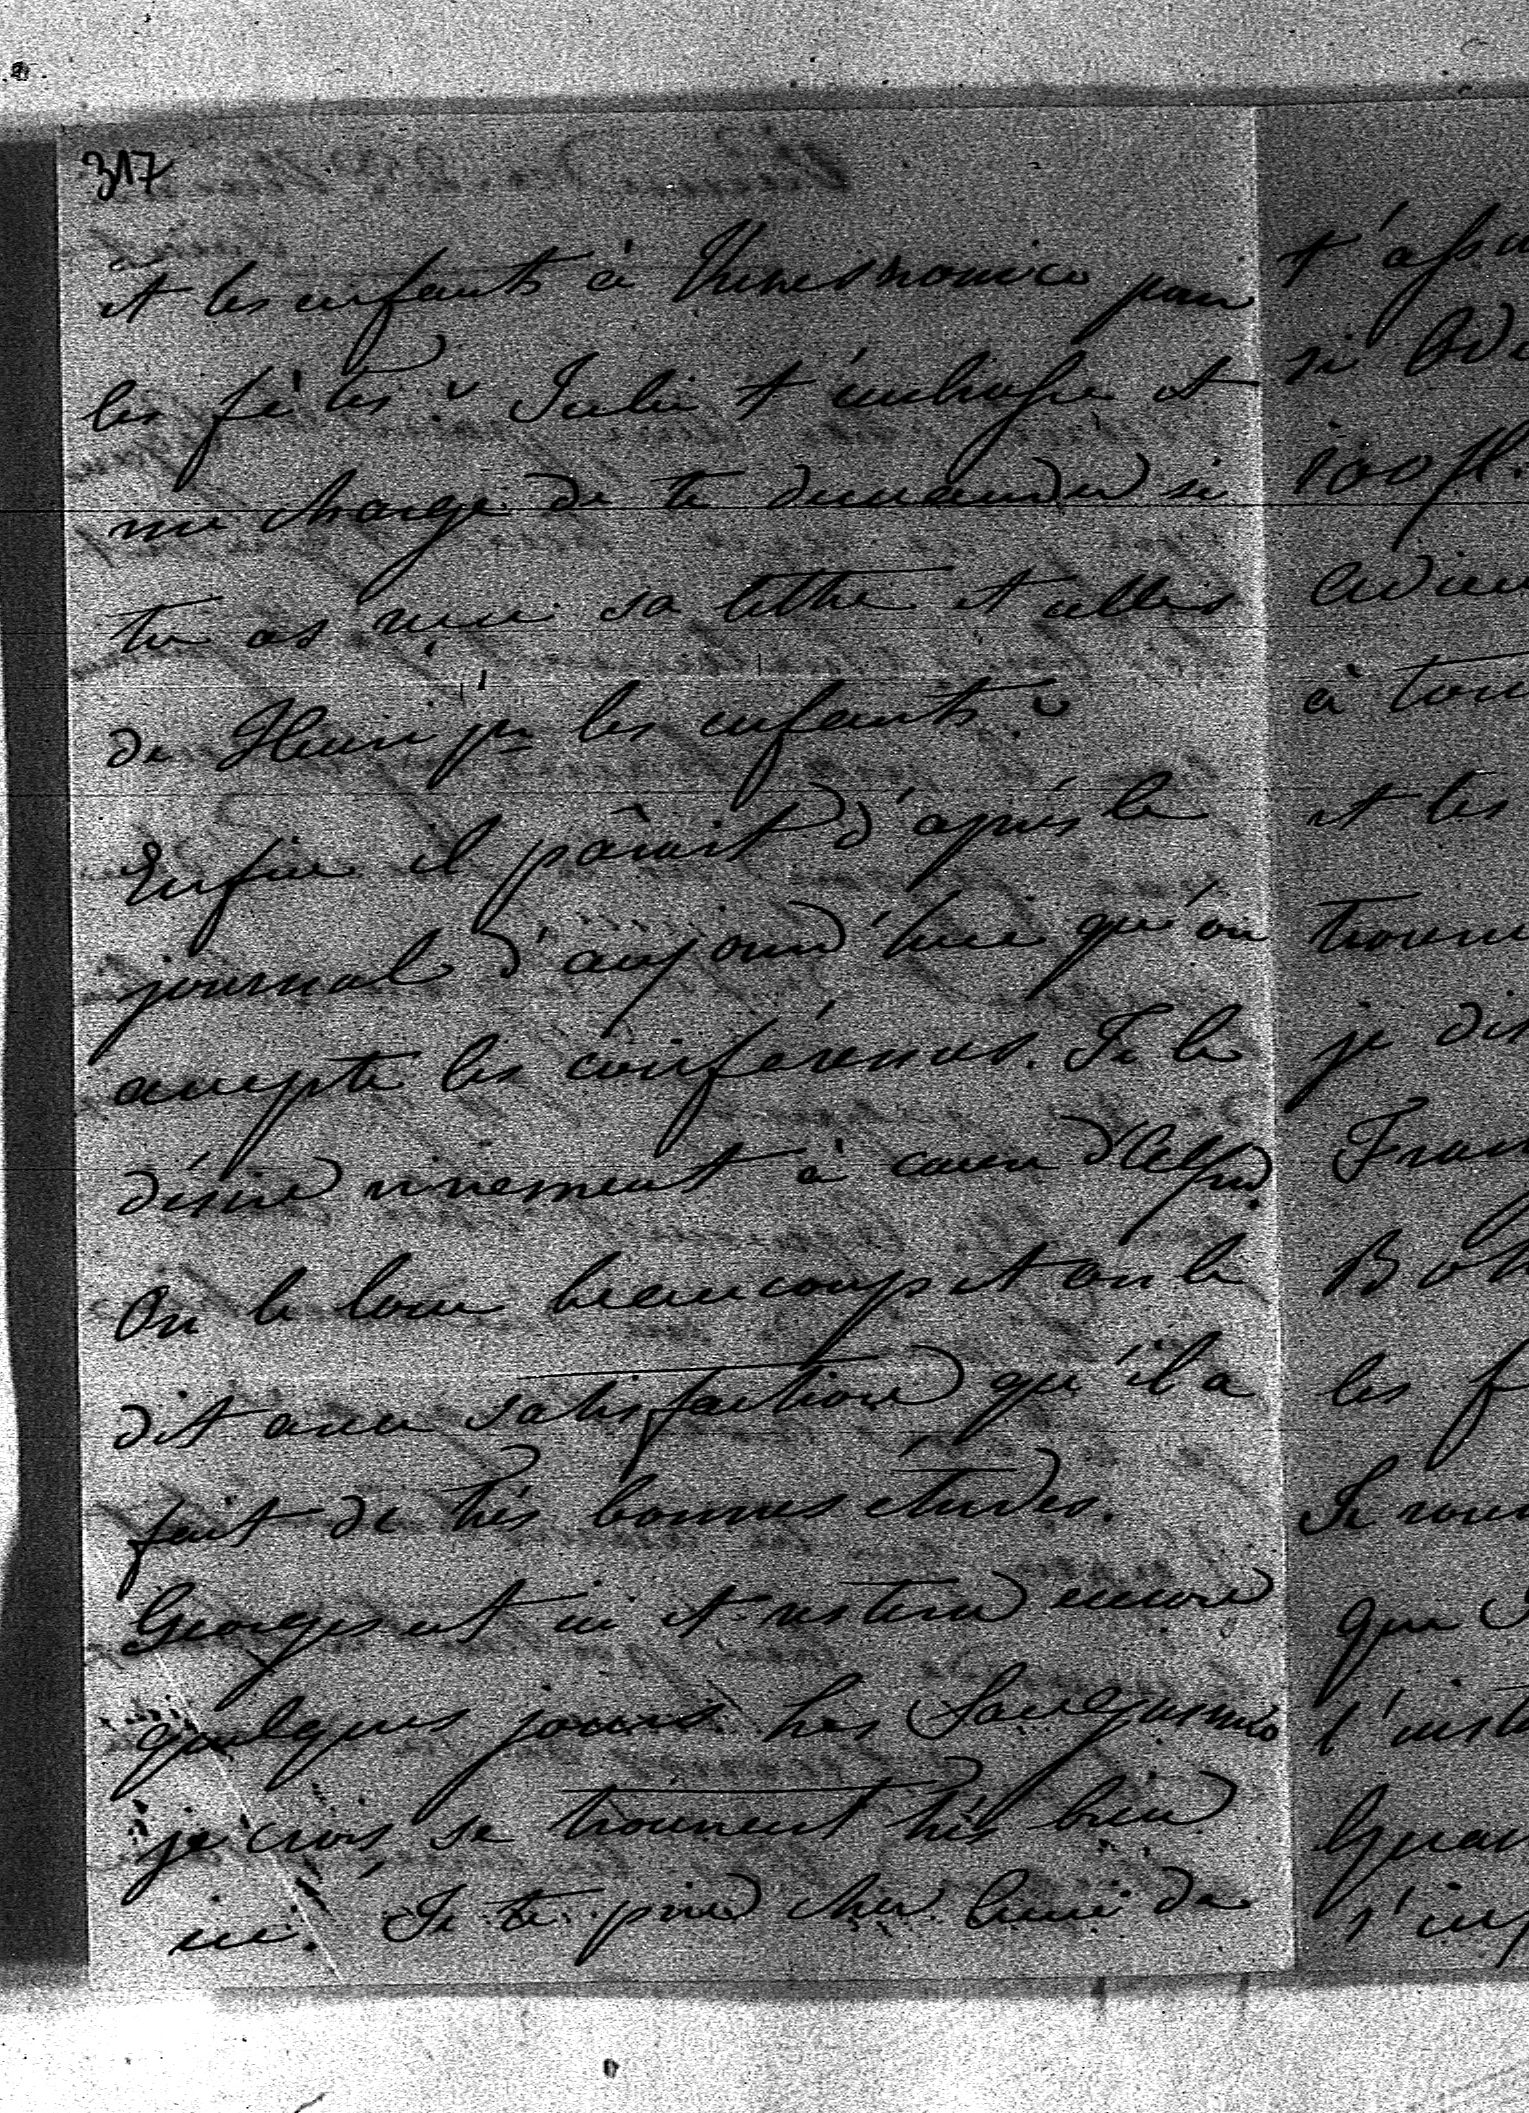 317
et les enfants à pour
les fêtes? Julie t'embrasse et
me charge de te demander si
tu as reçu sa lettre et celles
de Henri pr les enfants?
Enfin il pârait d'après le
journal d'aujourd'hui qu'on
accepte les conférences. Je le
désire vivement à cause d'Alfrd.
On le loue beaucoup et on le
dit avec satisfaction qu'il a
fait de très bonnes études.
Georges est ici et restera encore
quelques jours. Les
je crois se trouvent très bien
ici. Je te prie cher ami de
si
100 fl.
Adieu
à tou
et les
trouve
je dis
Fran
Bo
les f
Je
que
l'inst
Quan
s'in